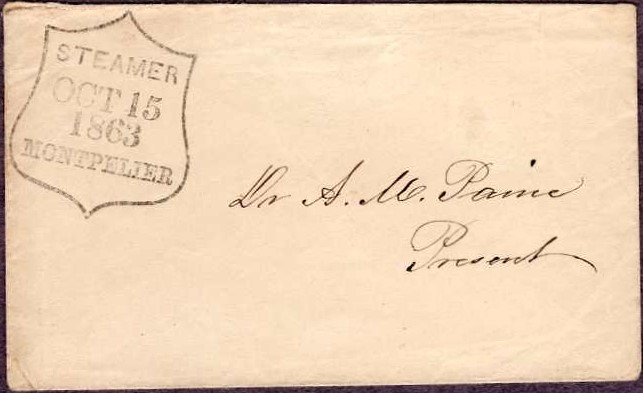 STEAMER
OCT 15
1863
MONTPELIER
Dr A. M. Paine
Present